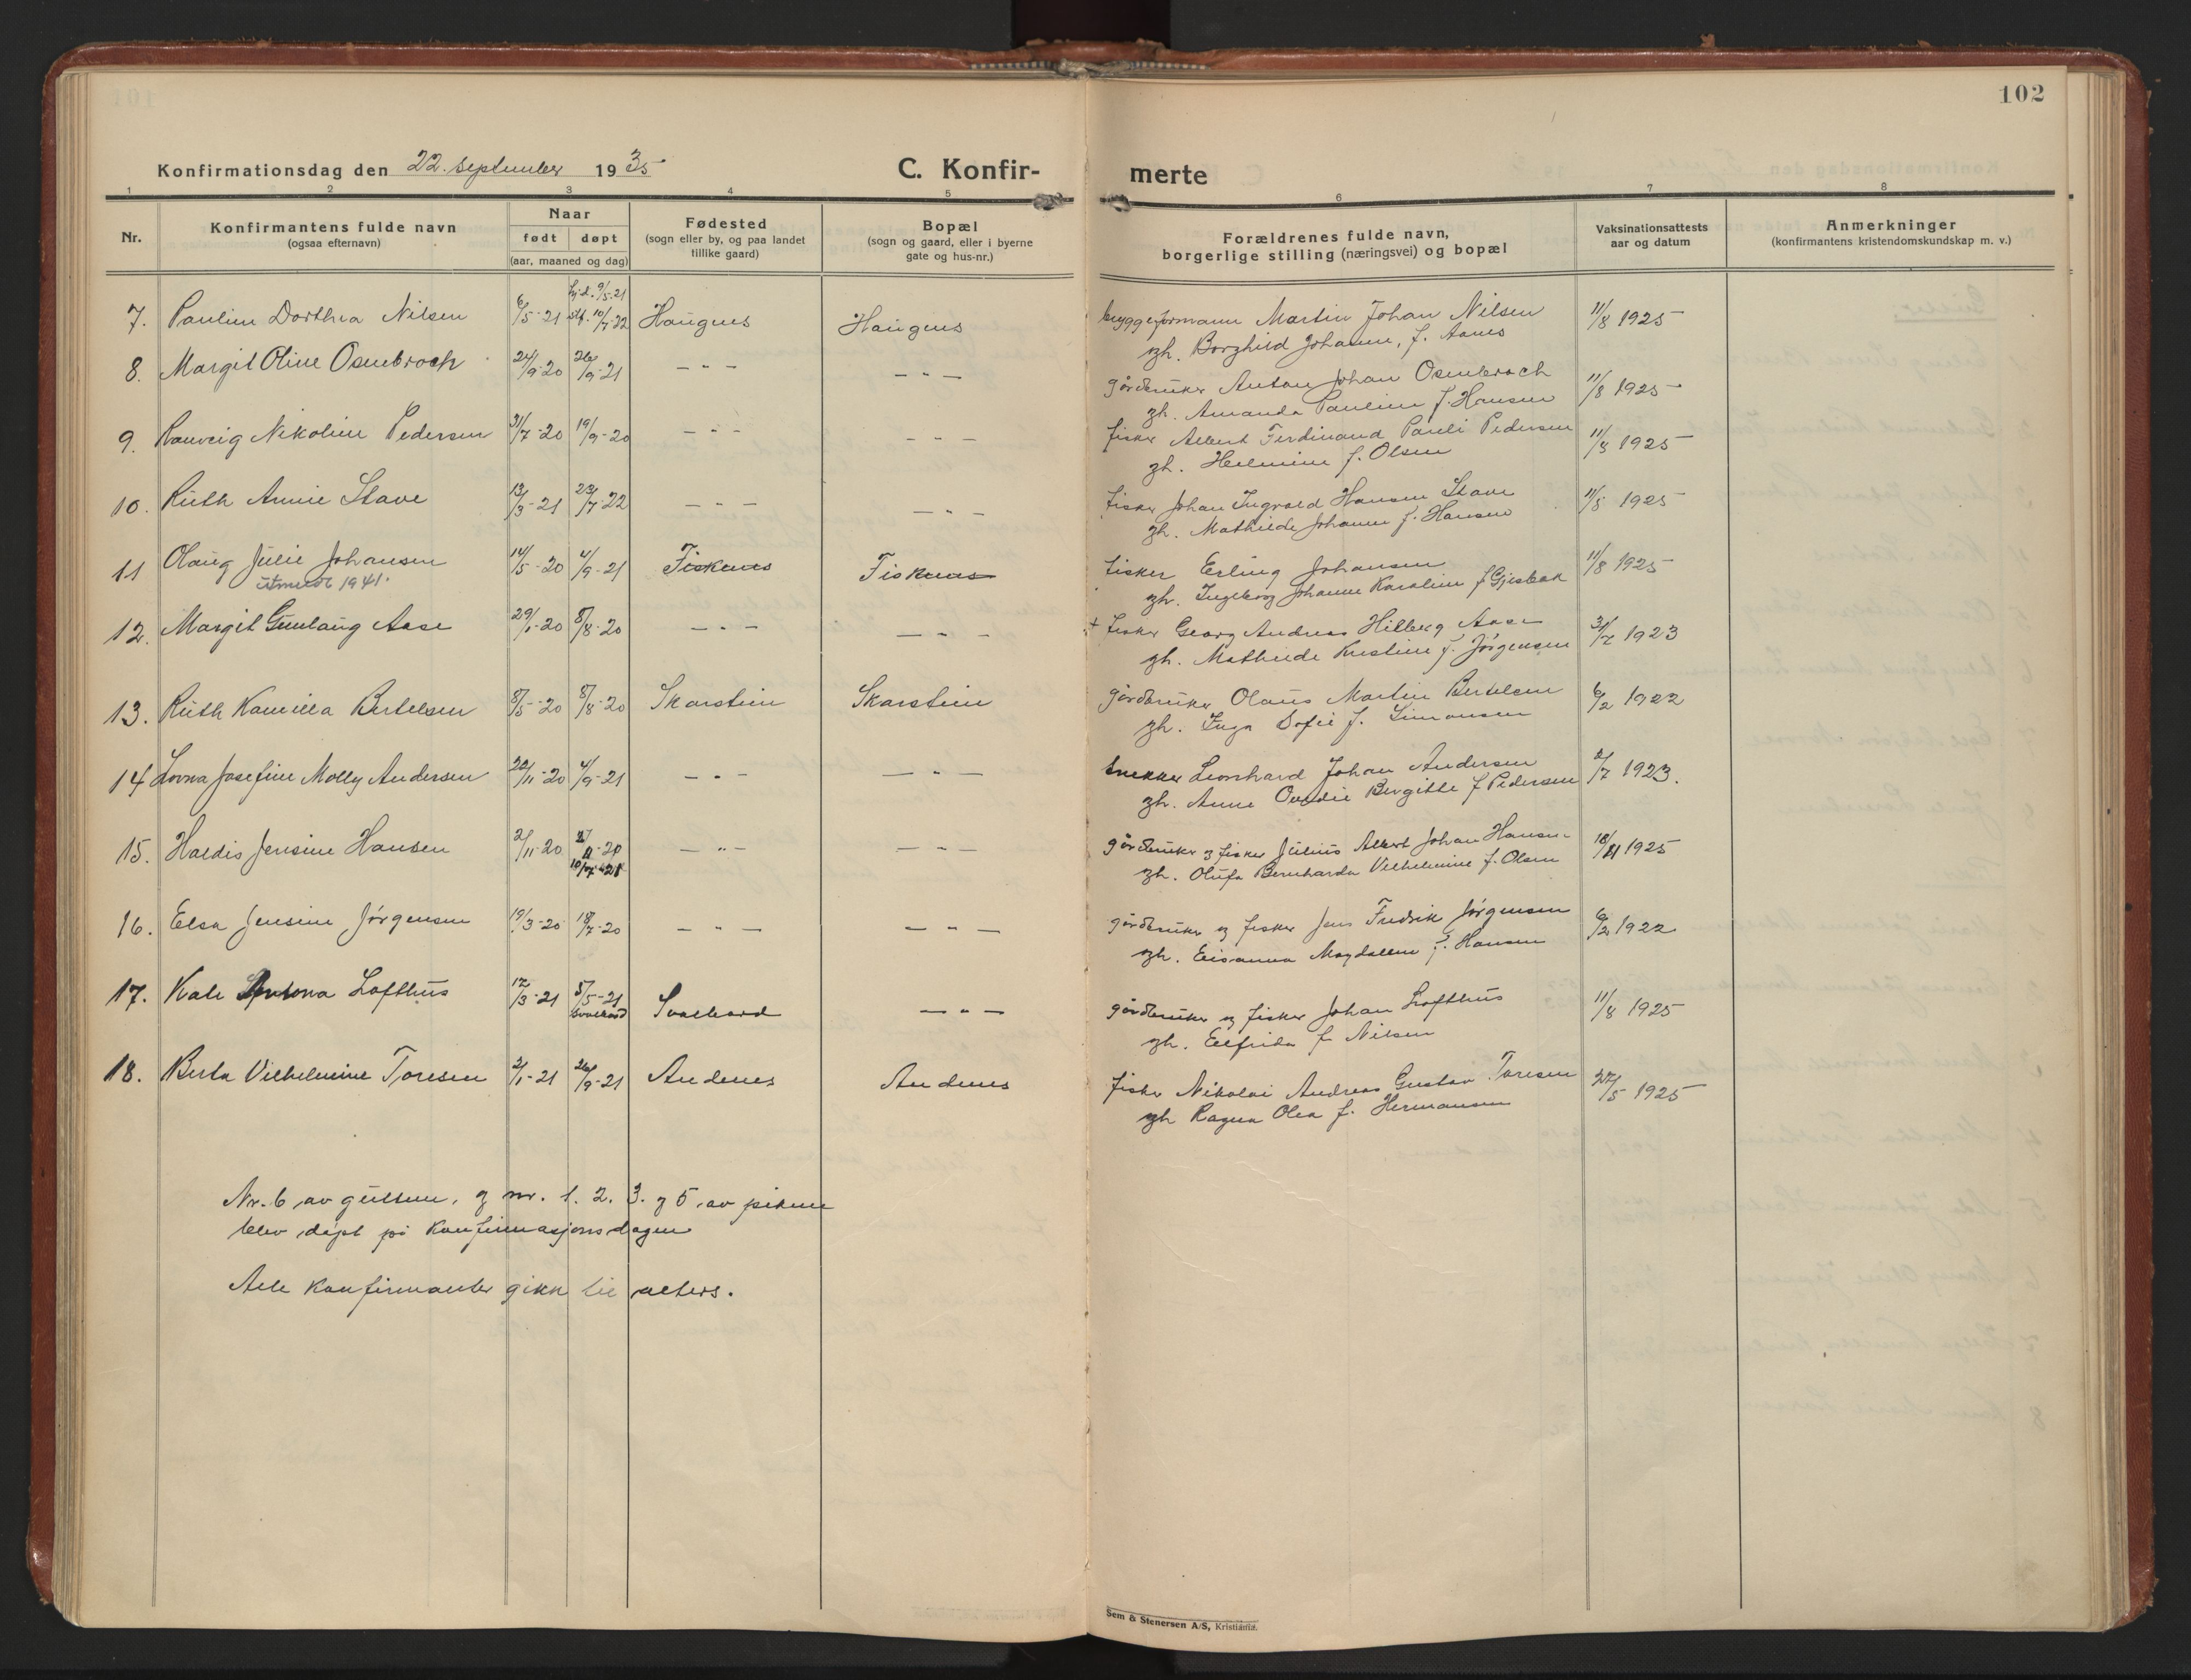 102
Konfirmationsdag den 22. september 1935
C. Konfir-
merte
1 2 3 4 5 6 7 8
Nr.
Konfirmantens fulde navn
(ogsaa efternavn)
Naar
født døpt
(aar, maaned og dag)
Fødested
(sogn eller by, og paa landet
tillike gaard)
Bopæl
(sogn og gaard, eller i byerne
gate og hus-nr.)
Forældrenes fulde navn,
borgerlige stilling (næringsvei) og bopæl
Vaksinationsattests
aar og datum
Anmerkninger
(konfirmantens kristendomskundskap m. v.)
hj.d. 9/5-21
7. Pauline Dorthea Nilsen 6/5-21 stf. 10/7-22 Haugnes Haugnes bryggeformann Martin Johan Nilsen 11/8 1925
gh. Borghild Johanne, f. Aanes
8. Margit Oline Osenbroch 24/9-20 26/9-21 — " — — " — gårdbruker Anton Johan Osenbroch 11/8 1925
gh. Amanda Pauline f. Hansen
9. Ranveig Nikoline Pedersen 31/7-20 19/9-20 — " — — " — fisker Albert Ferdinand Pauli Pedersen 11/8 1925
gh. Helmine f. Olsen
10. Ruth Annie Stave 13/3-21 23/7-22 — " — — " — fisker Johan Ingvald Hansen Stave 11/8 1925
gh. Mathilde Johanne f. Hansen
11 Olaug Julie Johansen 14/5-20 4/9-21 Fiskenes Fiskenes fisker Erling Johansen 11/8 1925
utmeldt 1941.
gh. Ingeborg Johanne Karoline f. Gjesbak
12. Margit Gunlaug Aase 29/1-20 8/8-20 — " — — " — + fisker Georg Andreas Hilberg Aase 31/7 1923
gh. Mathilde Kristine f. Jørgensen
13. Ruth Kamilla Bertelsen 8/5-20 8/8-20 Skarstein Skarstein gårdbruker Olaus Martin Bertelsen 6/2 1922
gh. Inga Sofie f. Simonsen
14 Lovna Josefine Molly Andersen 22/11-20 4/9-21 — " — — " — snekker Leonhard Johan Andersen 2/7 1923.
gh. Anne Ovedie Bergitte f. Pedersen
15. Haldis Jensine Hansen 2/11-20 — " — — " — gårdbruker og fisker Julius Albert Johan Hansen 18/11 1925
10/7-21
gh. Olufa Bernharda Vilhelmine f. Olsen
16. Elsa Jensine Jørgensen 19/3-20 18/7-20 — " — — " — gårdbruker og fisker Jens Fredrik Jørgensen 6/2 1922
gh. Elisanna Magdalene f. Hansen
17. Kale Antona Lofthus 12/3-21 8/5-21 Svalbard — " — gårdbruker og fisker Johan Lofthus 11/8 1925
Svalbard
gh. Elfrida f. Nilsen
18. Berta Vilhelmine Toresen 2/1-21 26/9-21 Andenes Andenes fisker Nikolai Andreas Gustav Toresen 27/5 1925
gh Ragna Olea f. Hermansen
Nr. 6 av guttene, og nr. 1. 2. 3. og 5 av pikene
blev døpt på konfirmasjonsdagen
Alle konfirmanter gikk til alters.
Sem & Stenersen A/S, Kristiania.